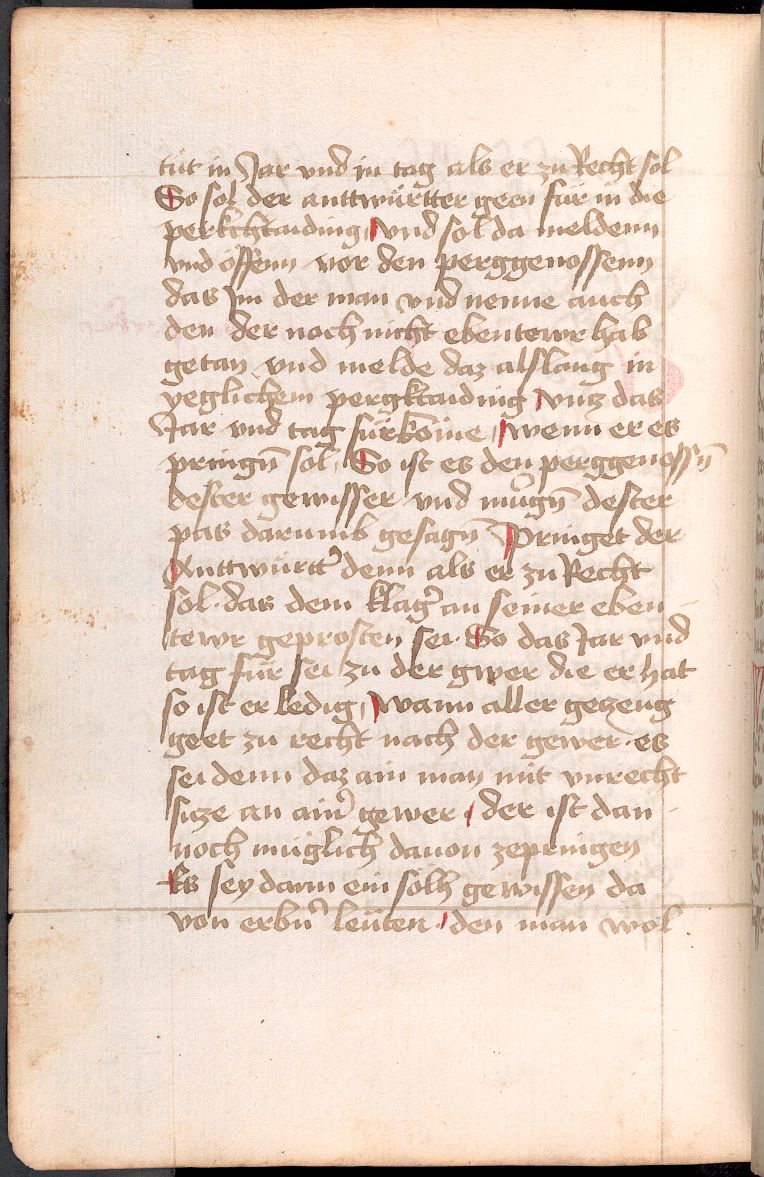 tut in Jar vnd in tag als er zu Recht sol
So sol der anttwürtter geen für in die
perkchtaiding, vnd sol da meldenn
vnd öffenn vor den perggenossenn
das Im der man vnd nenne auch
den der noch nicht ebentewr hab
getan vnd melde daz alslang in
yeglichem pergktaiding vntz das
Jar vnd tag fürköme, wenn er es
pringn̄ sol, So ist es den perggenossn̄
dester gewisser vnd mügn̄ dester
pas darumb gesagn̄ Pringet der
Anttwürtt' denn als er zu Recht
sol. das dem klag' an seiner eben
tewr geprosten sei. So das Jar vnd
tag für sei zu der gwer die er hat
so ist er ledig, wann aller gezeug
geet zu recht nach der gewer. es
sei denn daz ain man mit vnrecht
size an ain' gewer, der ist dan
noch müglich dauon zepringen
Es sey dann ein solh gewissen da
von erbn' leüten. den man wol